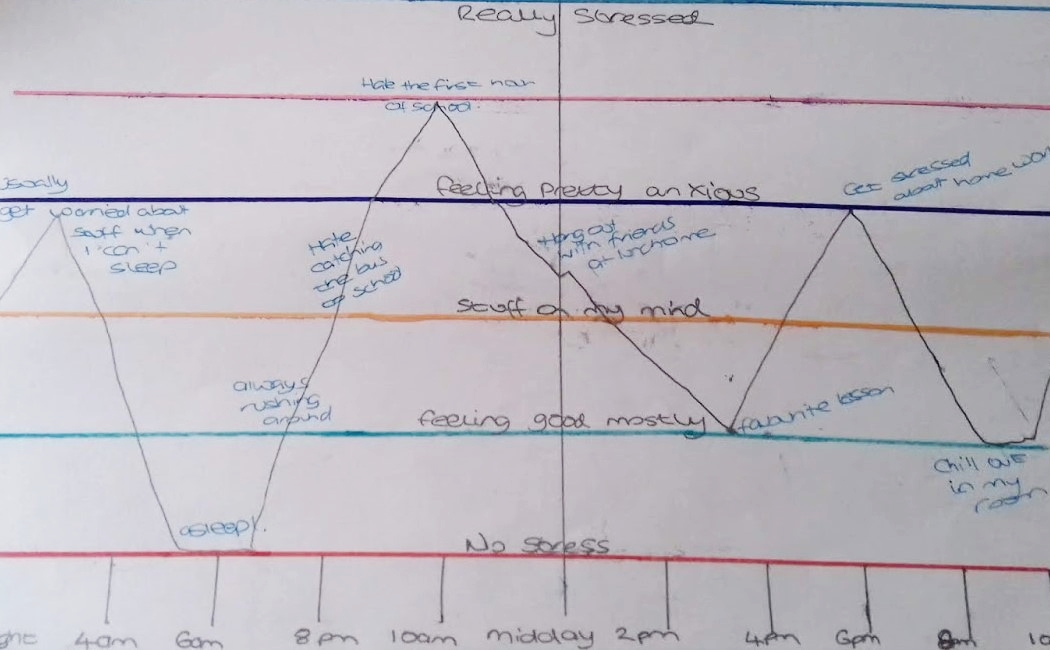 Really Stressed
Hate the first hour
at school.
usually
get worried about
stuff when
I can't
sleep
feeling pretty anxious
Get stressed
about home wor
Hate
catching
the bus
op school
Hang out
with friends
at lunchome
Stuff on my mind
always
rushing
around
feeling good mostly
favourite lesson
Chill out
in my
room
asleep!
No stress
ght 4am 6am 8pm 10am midday 2pm 4pm 6pm 8pm 10